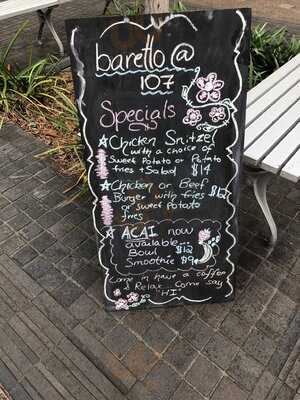 baretto @
107
Specials
Chicken Snitzel
with a choice of
Sweet Potato or Potato
fries + Salad $14
Chicken or Beef
Burger with fries $12
or sweet potato
fries
ACAI now
available...
Bowl $12
Smoothie $9
Come in have a coffee
& Relax. Come say
"HI"